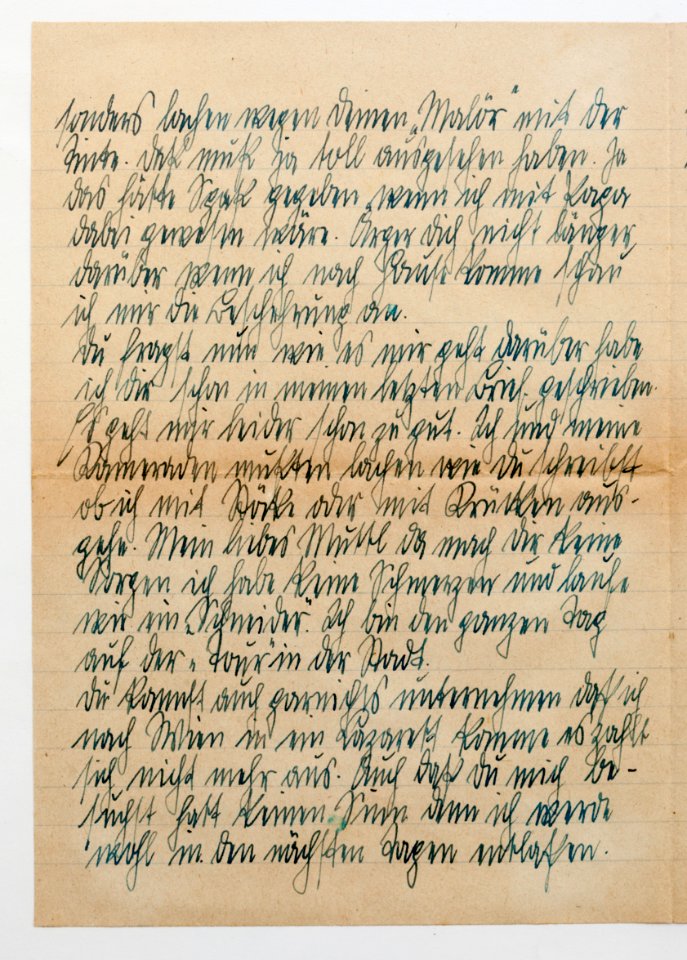 sonders lachen wegen deinen „Malör" mit der
Tinte. Daß muß ja toll ausgesehen haben. Ja
das hätte Spaß gegeben wenn ich mit Papa
dabei gewesen wäre. Ärger dich nicht länger
darüber wenn ich nach Hause komme schau
ich mir die Bescherung an.
Du fragst nun wie es mir geht darüber habe
ich dir schon in meinen letzten Brief geschrieben.
Es geht mir leider schon zu gut. Ich und meine
Kameraden mußten lachen wie du schreibst
ob ich mit Stöcke oder mit Krücken aus-
gehe. Mein liebes Muttl da mach dir keine
Sorgen ich habe keine Schmerzen und laufe
wie ein „Schneider". Ich bin den ganzen Tag
auf der „Tour" in der Stadt.
Du kannst auch garnichts unternehmen daß ich
nach Wien in ein Lazarett komme es zahlt
sich nicht mehr aus. Auch daß du mich be-
suchst hatt keinen Sinn denn ich werde
wohl in den nächsten Tagen entlassen.